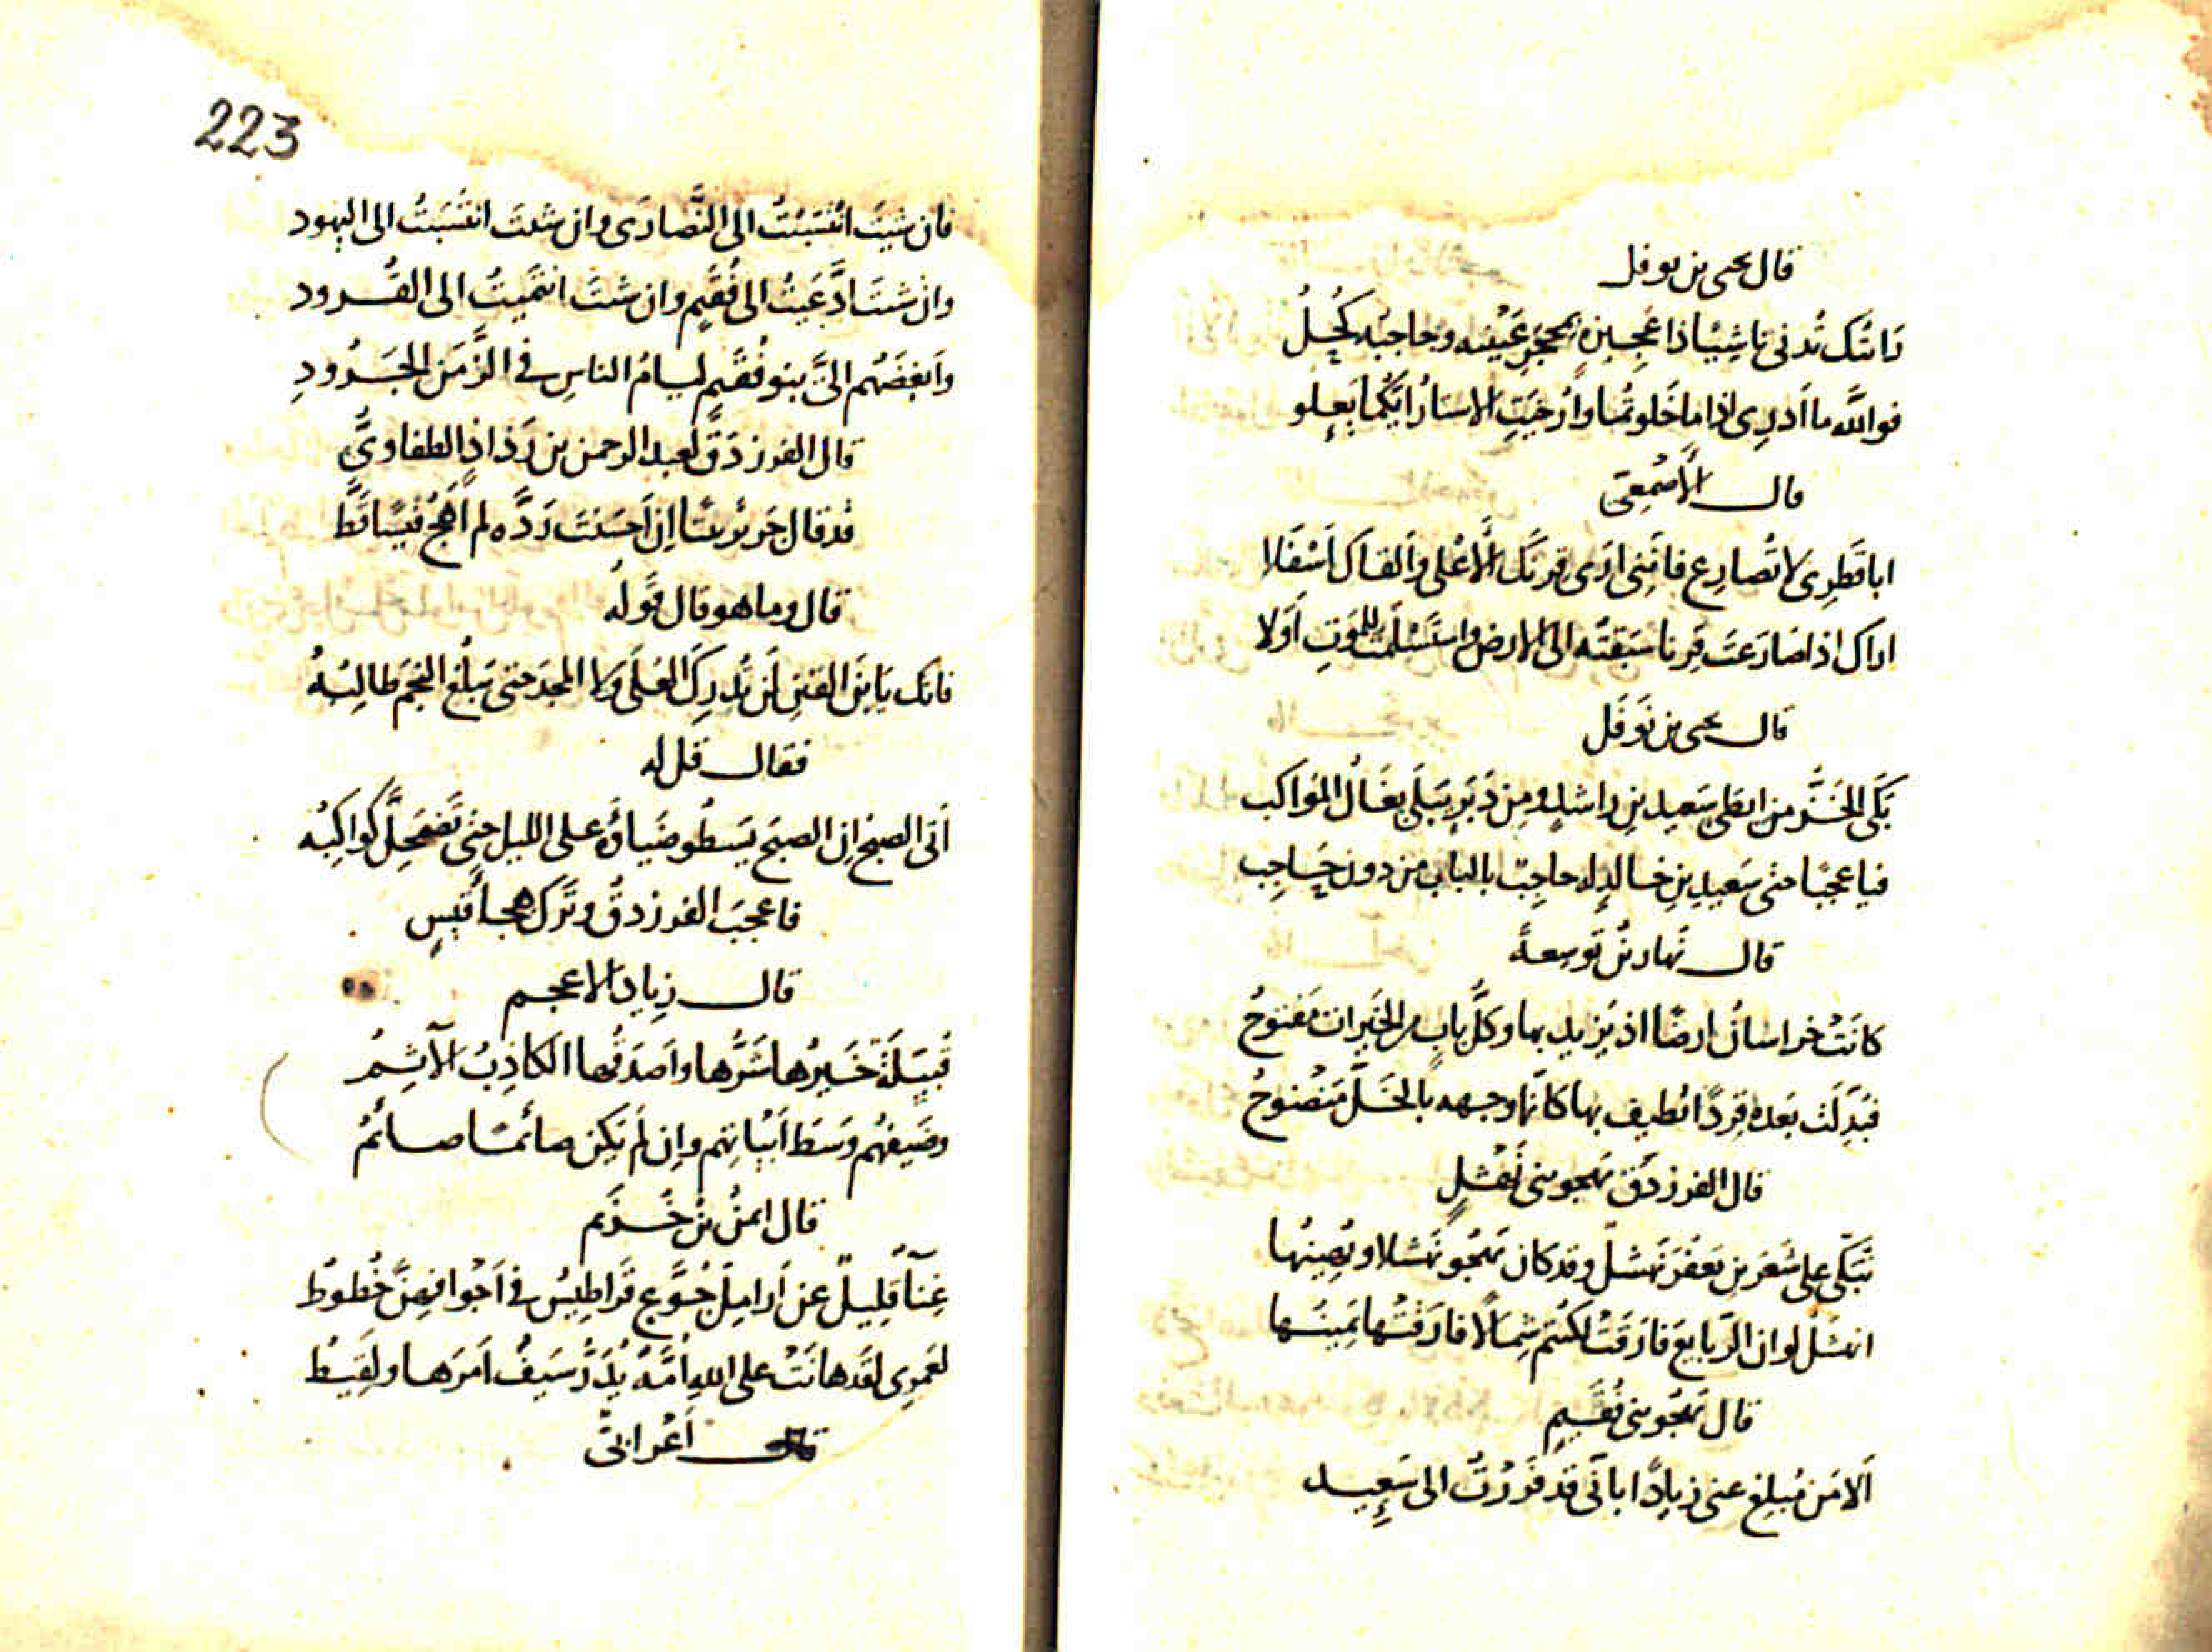 قال يحيى بن نوفل
رَاتك تُدنى ناشِيًا ذا عَجِيزةٍ بمحجَرِ عَيْنيه وحاجبه كُحِلُ
فواللَّه ما أدرِى إذا ما خَلوتُما وأُرخيَتِ الاستارُ أيُّكما بَعلو
قال الأصْمَعِىّ
ابا قَطَرِى لا تُصارِع فإنَّنِى ارَى قِرنَك الأعْلى وألقاكَ اسْفَلا
اراك اذا صَارَعتَ قِرنا سَبَقتَه الى الارض واستَسْلَمتَ للموتِ أوَّلا
قال يحيى بن نَوفَل
بَكَى الخَزُّ من ابطَى سَعِيدِ بنِ راشدٍ ومِن دَبَرٍ يَبلَى بغَالُ المَواكب
فيا عجبًا حتى سَعِيدِ بنِ خالدٍ له حاجِبٌ بالباب من دون حَاجِب
قال نَهارُ بنُ تَوسِعةَ
كانَتْ خراسانُ ارضًا اذ يَزيد بها وكلُّ بابٍ من الخَيرات مَفتوحُ
فبُدِّلَت بَعده قِردًا نُطيف بها كانّما وجهه بالخَلّ مَنضوحُ
قال الفرزدَق يهجو بنى نَهشَلٍ
تُبَكّى على شَعَرَ بنِ يَعفُرَ نَهشل وقد كان يَهجُو نَهشلا ويُهِينُها
انهشلُ لو ان الرَّبايعَ فارَقَتْ لكنتم شِمَالًا فارَقَتْها يَمِينُها
قال يَهجُو بنى فُقَيمٍ
ألا مَن مُبلِغ عنى زيادًا بانّى قد فَررْتُ الى سَعِيد
223
فان شيتَ انتَسَبْتُ الى النَّصارَى وان شئت انتَسَبتُ الى اليهود
وان شئت ادَّعَيتُ الى فُقَيمٍ وان شئتَ انتَمَيتُ الى القرود
وأبغضَهُم الىَّ بنو فُقَيم ليامُ الناسِ فى الزَّمَن الجَرُودِ
قال الفرزدَقُ لعبد الرحمن بن رَذاذٍ الطفاوىِّ
قد قال جَرير بيتًا إن أحسَنتَ رَدَّه لم أهجُ قيسًا قَطّ
قال وما هو قال قَولُه
فانك يا بنَ القَينِ لَن تُدرِكَ العُلَى ولا المجدَ حتى يَبلُغ النجمَ طالِبُهُ
فقال قل له
أتى الصبحُ إن الصبحَ يَسطُو ضَياؤُه على الليل حتى تَضمَحِلَّ كواكِبُه
فاعجبَ الفرزدقُ وتَرَك هجاءَ قيسٍ
قال زياد الاعجم
قُبَيِّلَة خَيرُها شَرُّها وأصدَقُها الكاذِبُ الآثِمُ
وضَيفهُم وَسَطَ أبْيَاتِهم وإن لَم يَكُن صائمًا صائمُ
قال ايمنُ بنُ خُزَيم
غِناءٌ قلِيلٌ عن أرامِلَ جُوَّعٍ قَراطِيسُ فى أجْوافِهِنَّ خُطوطُ
لعَمرِى لقَد هانَتْ على اللهِ أُمَّةٌ يُدَبِّرُ سَيفٌ امرَها ولَقِيطُ
قال أعْرابىّ